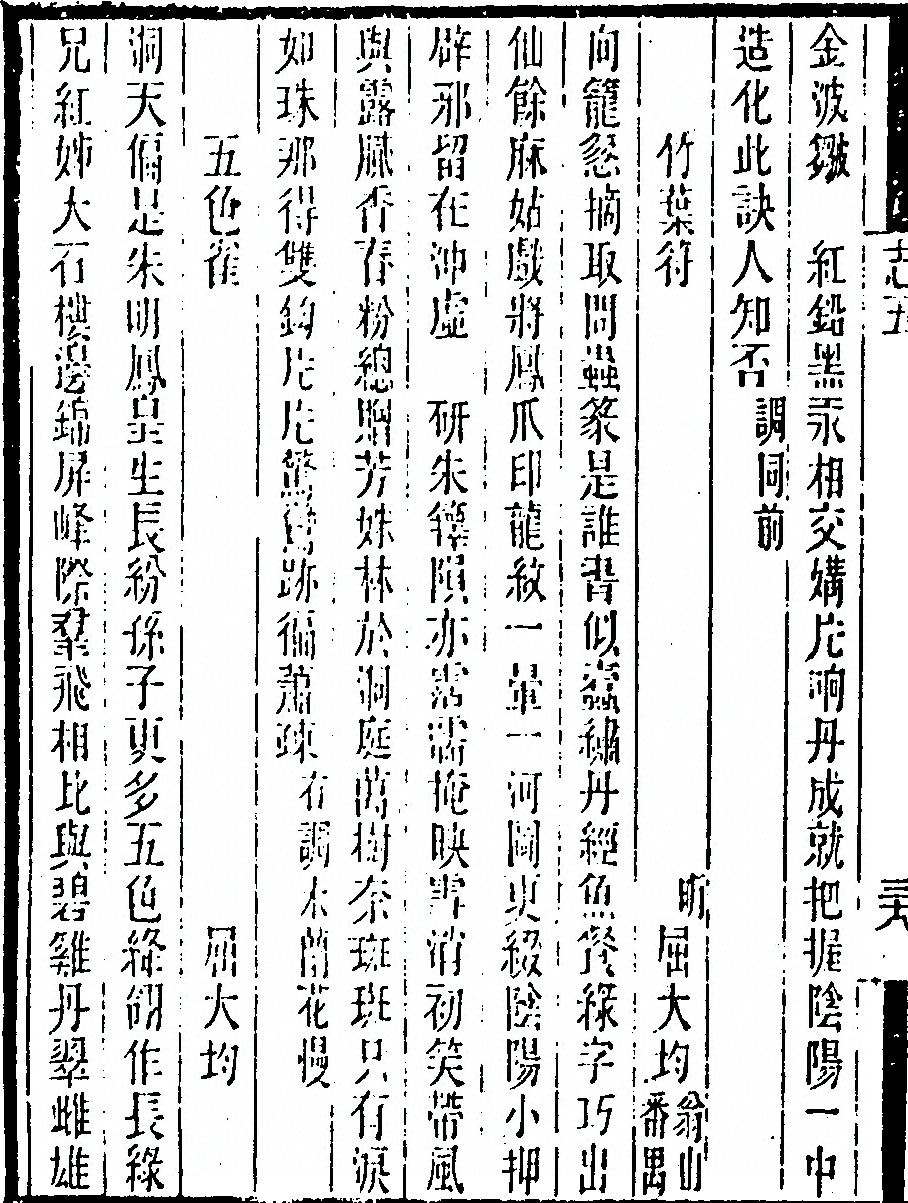 志五
金波皺　紅鉛黑汞相交媾片晌丹成就把握陰陽一中
造化此訣人知否調同前
竹葉符　明屈大均翁山番禺
向籠葱摘取問蟲篆是誰書似蠹繡丹經魚餐綠字巧出
仙餘麻姑戲將鳳爪印龍紋一畫一河圖更綴陰陽小押
辟邪留在沖虛　研朱籜隕亦霑濡掩映雪消初笑帶風
與露臙香春粉總贈芳姝林於洞庭萬樹奈斑斑只有淚
如珠那得雙鈎片片驚鸞跡徧蕭疎右調木蘭花慢
五色雀　屈大均
洞天偏是朱明鳳皇生長紛孫子更多五色絳翎作長綠
兄紅姊大石樓邊錦屏峰際羣飛相比與碧雞丹翠雌雄